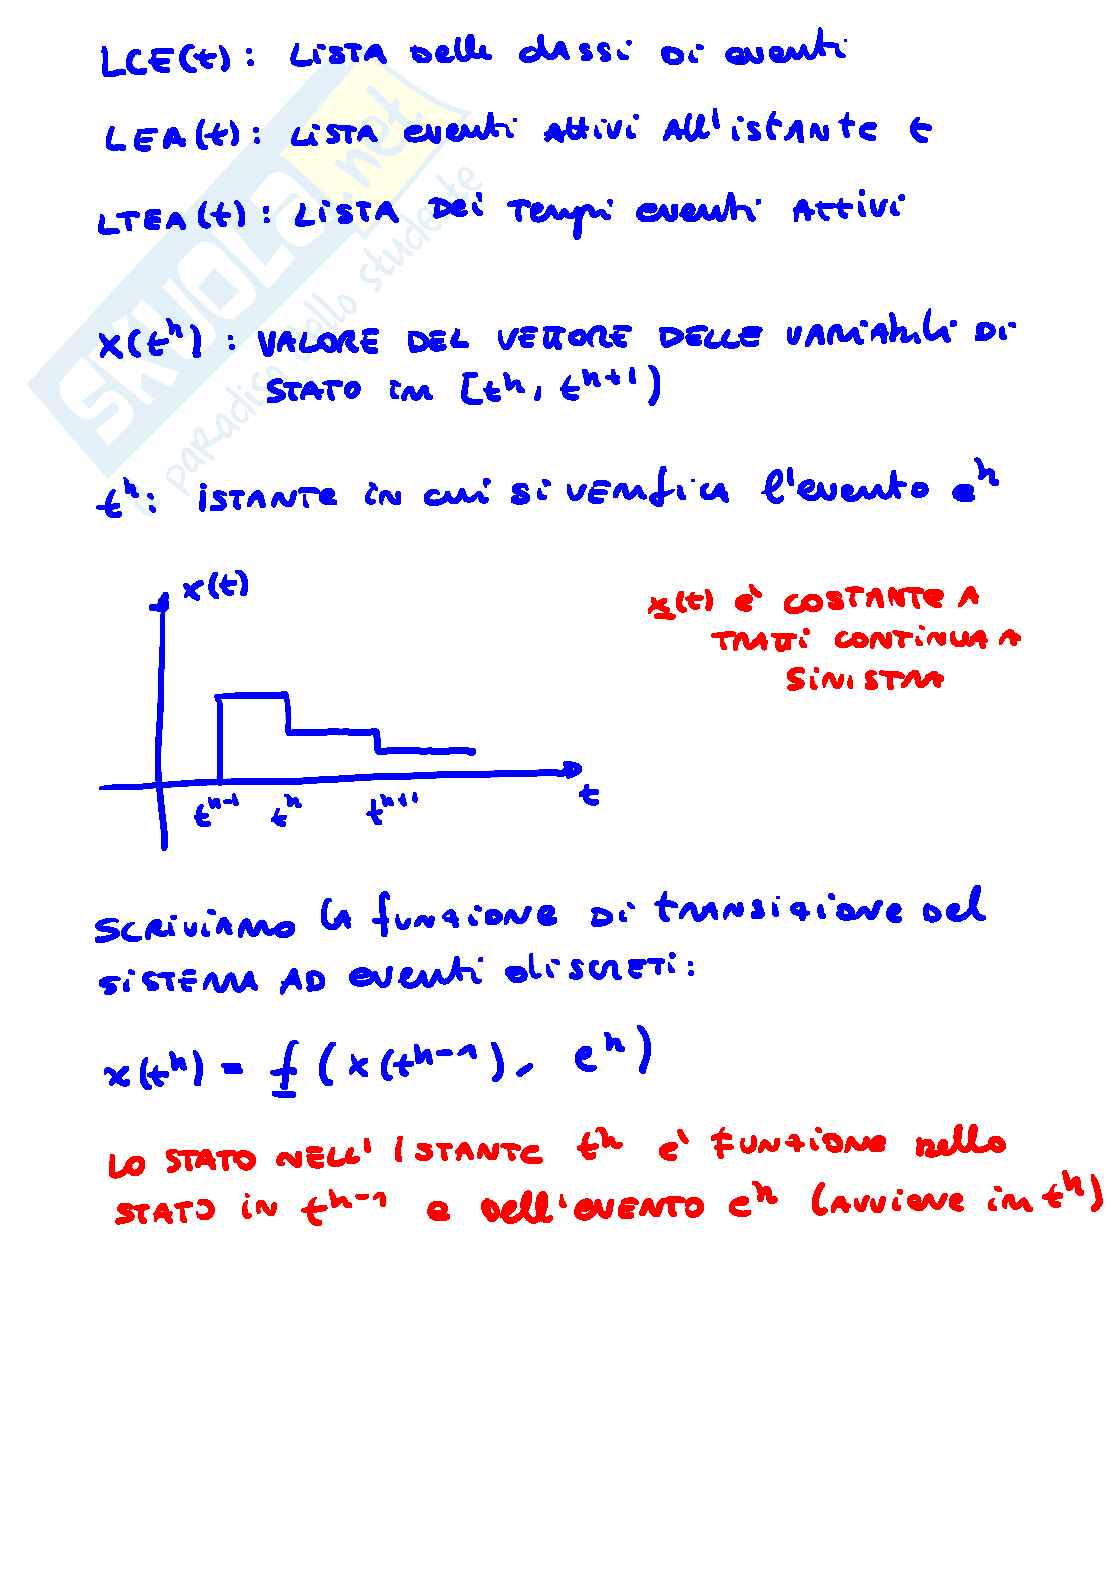 LCE(t): LISTA delle classi di eventi
LEA(t): LISTA eventi attivi all'istante t
LTEA(t): LISTA Dei Tempi eventi ATTIVI
x(t^h): VALORE DEL VETTORE DELLE VARIABILI DI
STATO in [t^h, t^h+1)
t^h: ISTANTE in cui si verifica l'evento e^h
x(t)
x(t) e' COSTANTE A
TRATTI CONTINUA A
SINISTRA
t^h-1 t^h t^h+1 t
SCRIVIAMO la funzione di transizione del
SISTEMA AD eventi discreti:
x(t^h) = f (x(t^h-1), e^h)
LO STATO NELL'ISTANTE t^h e' FUNZIONE nello
STATO in t^h-1 e dell'EVENTO e^h (AVVIENE in t^h)
SKUOLA.net
paradiso dello studente